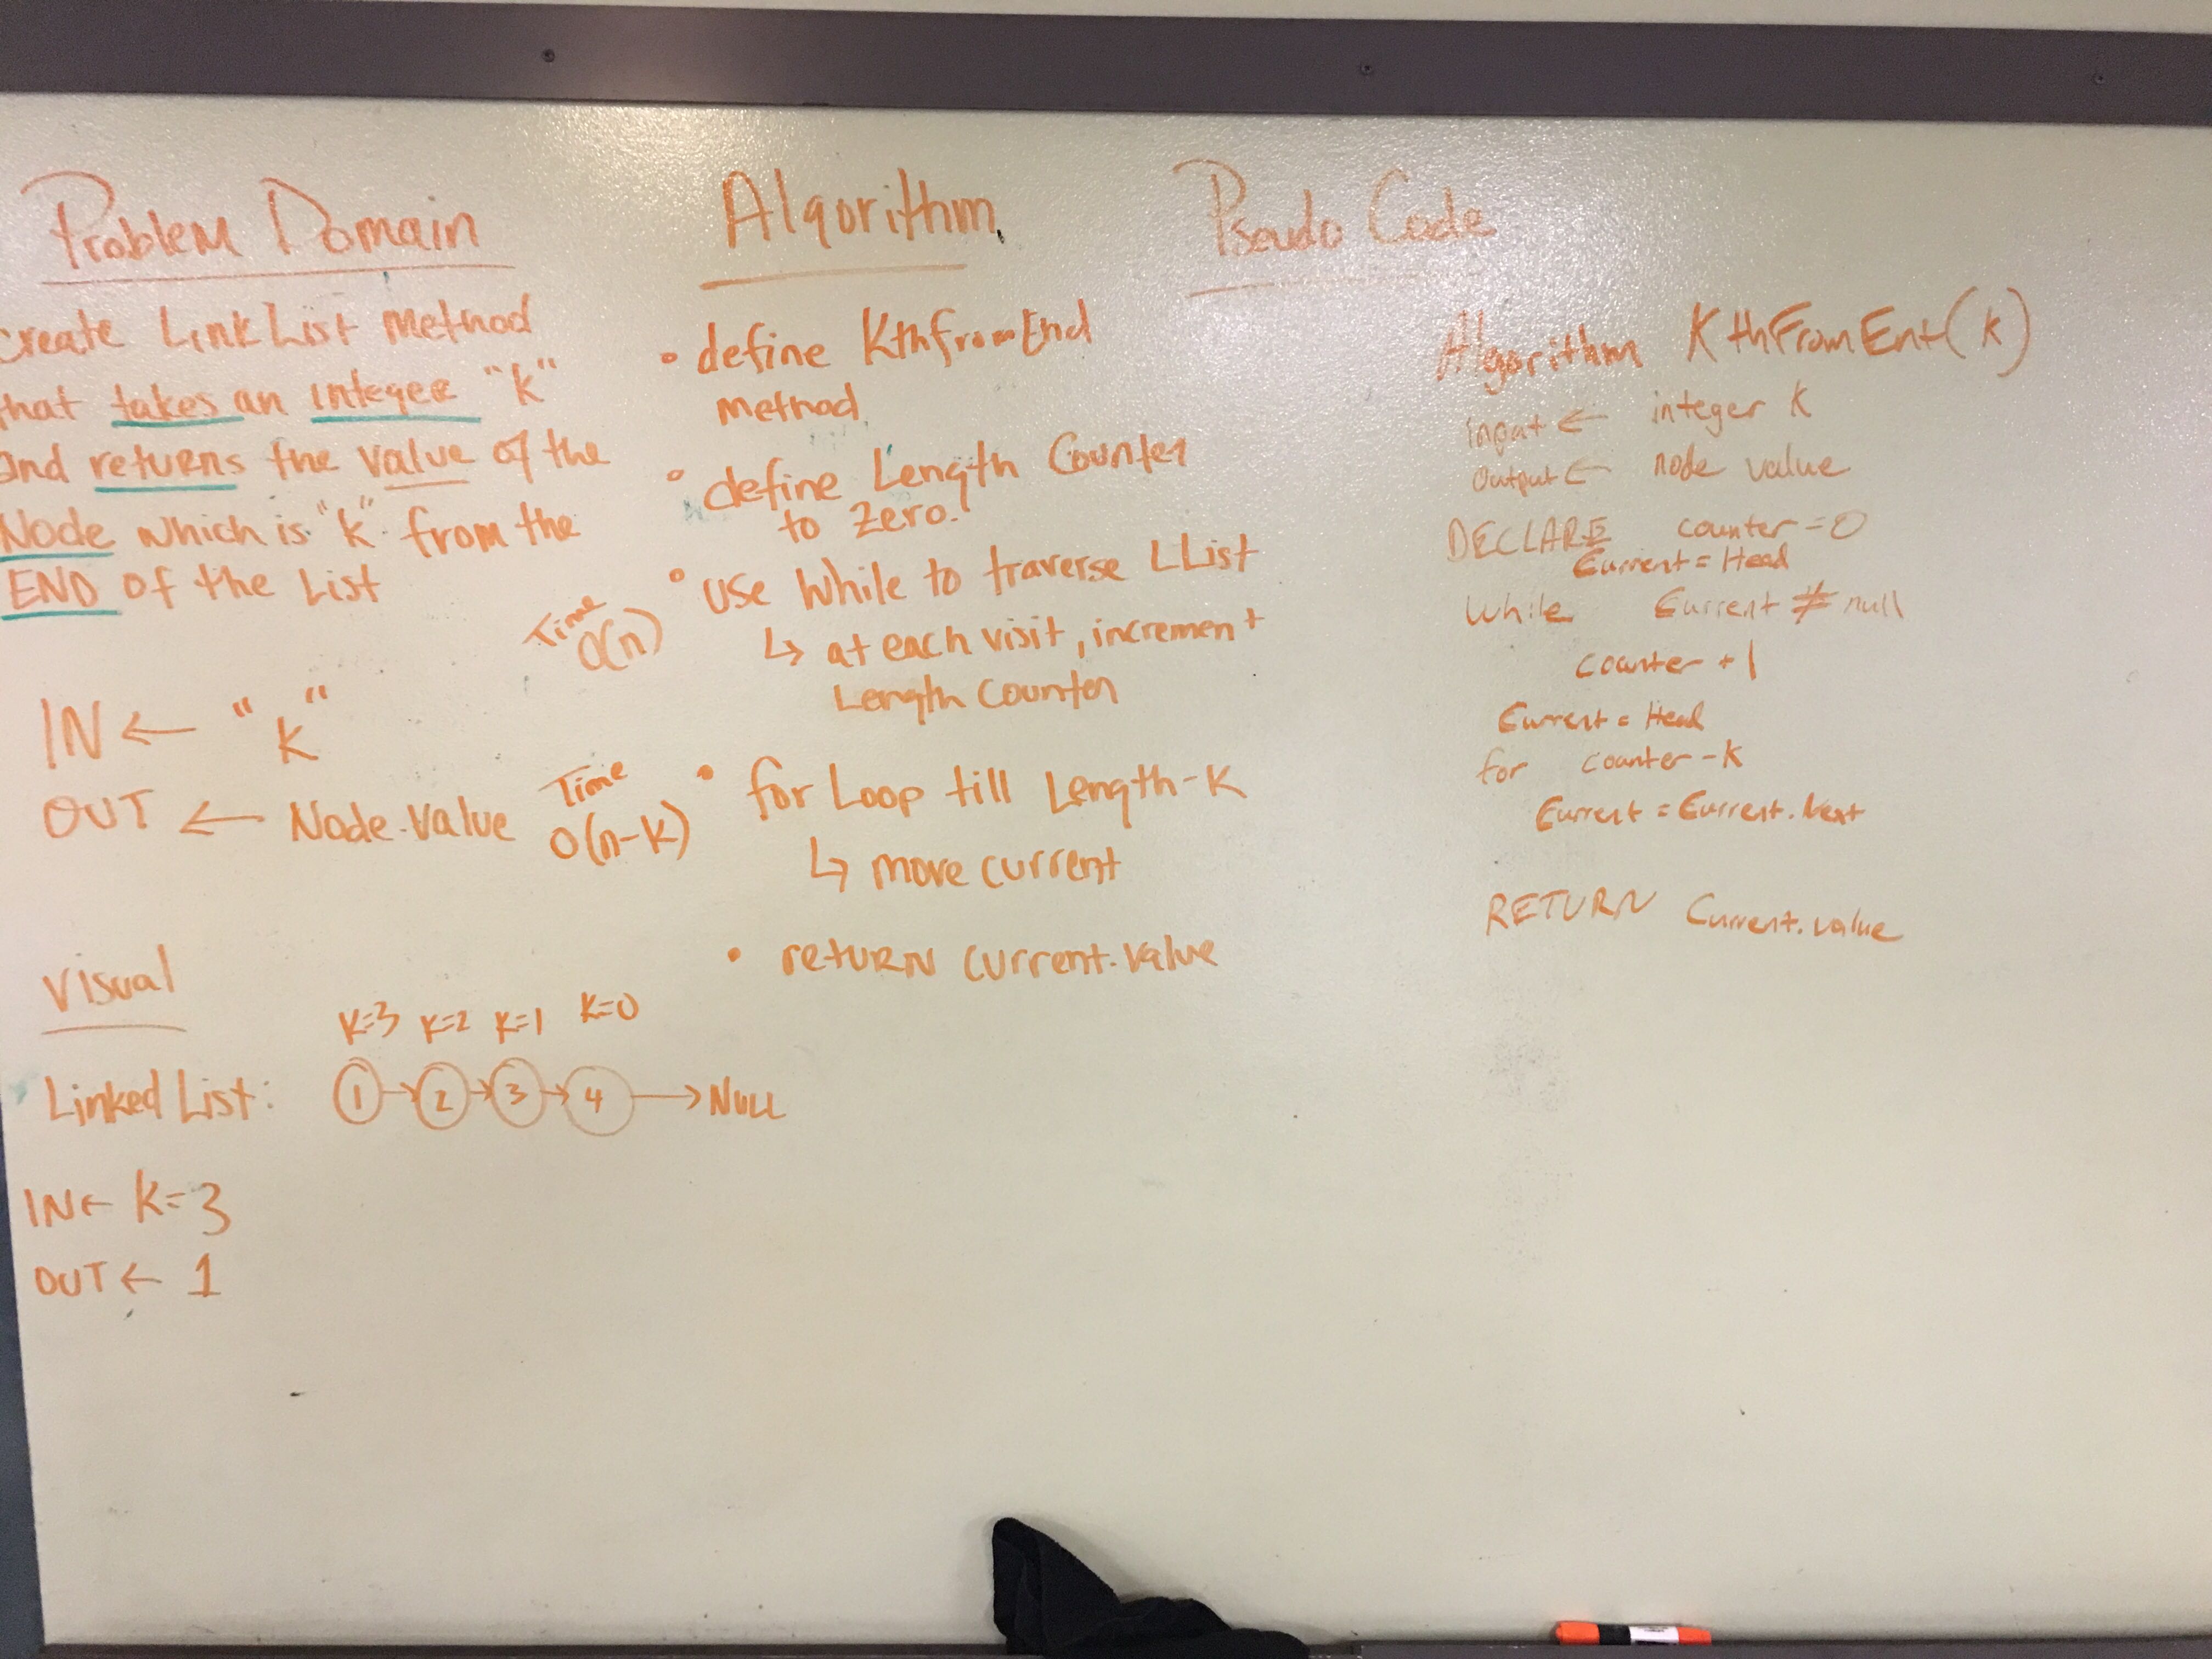 Problem Domain
create LinkList Method
that takes an integer "k"
and returns the value of the
Node which is "k" from the
END of the List
IN ← "k"
OUT ← Node.Value
Visual
K=3 K=2 K=1 K=0
Linked List: 1 → 2 → 3 → 4 → NULL
IN ← K=3
OUT ← 1
Algorithm
• define KthfromEnd
Method
• define Length Counter
to zero.
Time
O(n)
• use While to traverse LList
↳ at each visit, increment
Length Counter
Time
O(n-K)
• for Loop till Length-K
↳ move current
• return current.value
Pseudo Code
Algorithm KthFromEnt(k)
input ← integer K
Output ← node value
DECLARE counter = 0
Current = Head
While Current ≠ null
counter + 1
Current = Head
for counter - K
Current = Current.Next
RETURN Current.value